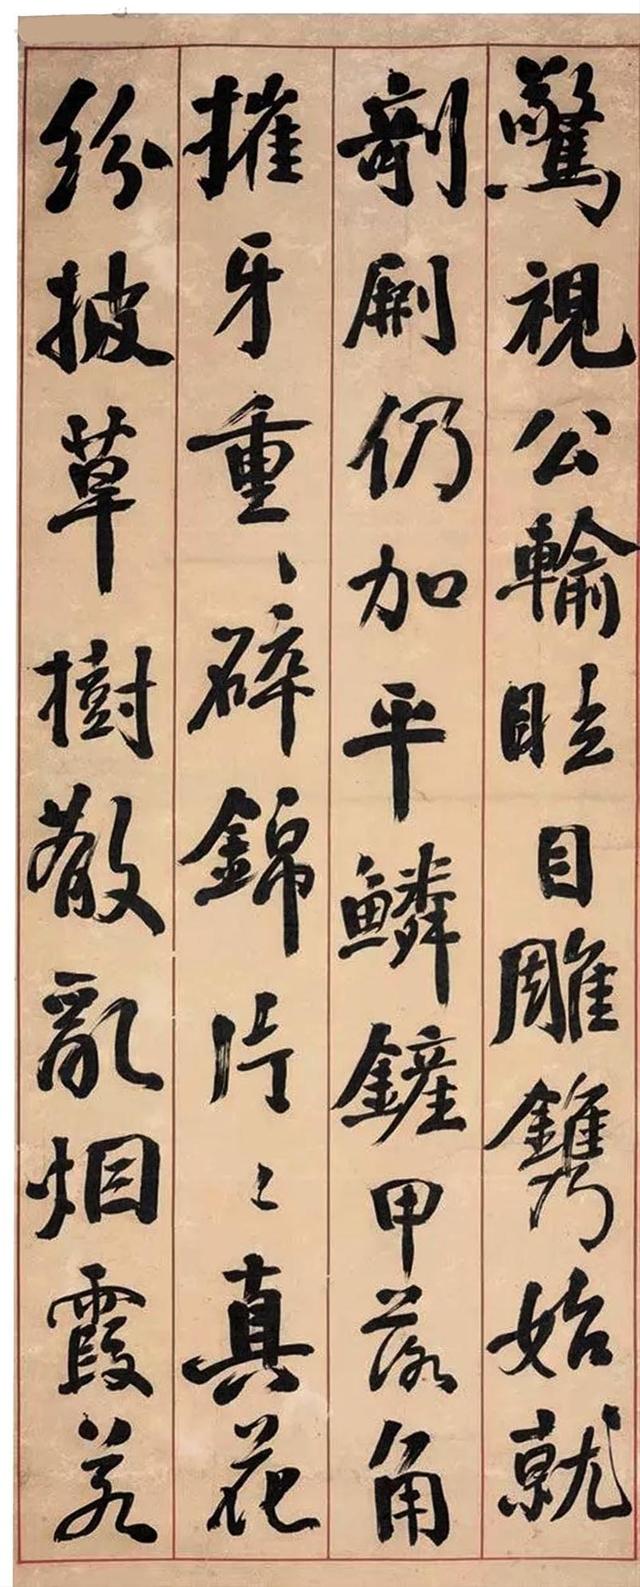 驚視公輸眩目雕鐫始就
剞劂仍加平鱗鏟甲落角
摧牙重〻碎錦片〻真花
紛披草樹散亂烟霞若